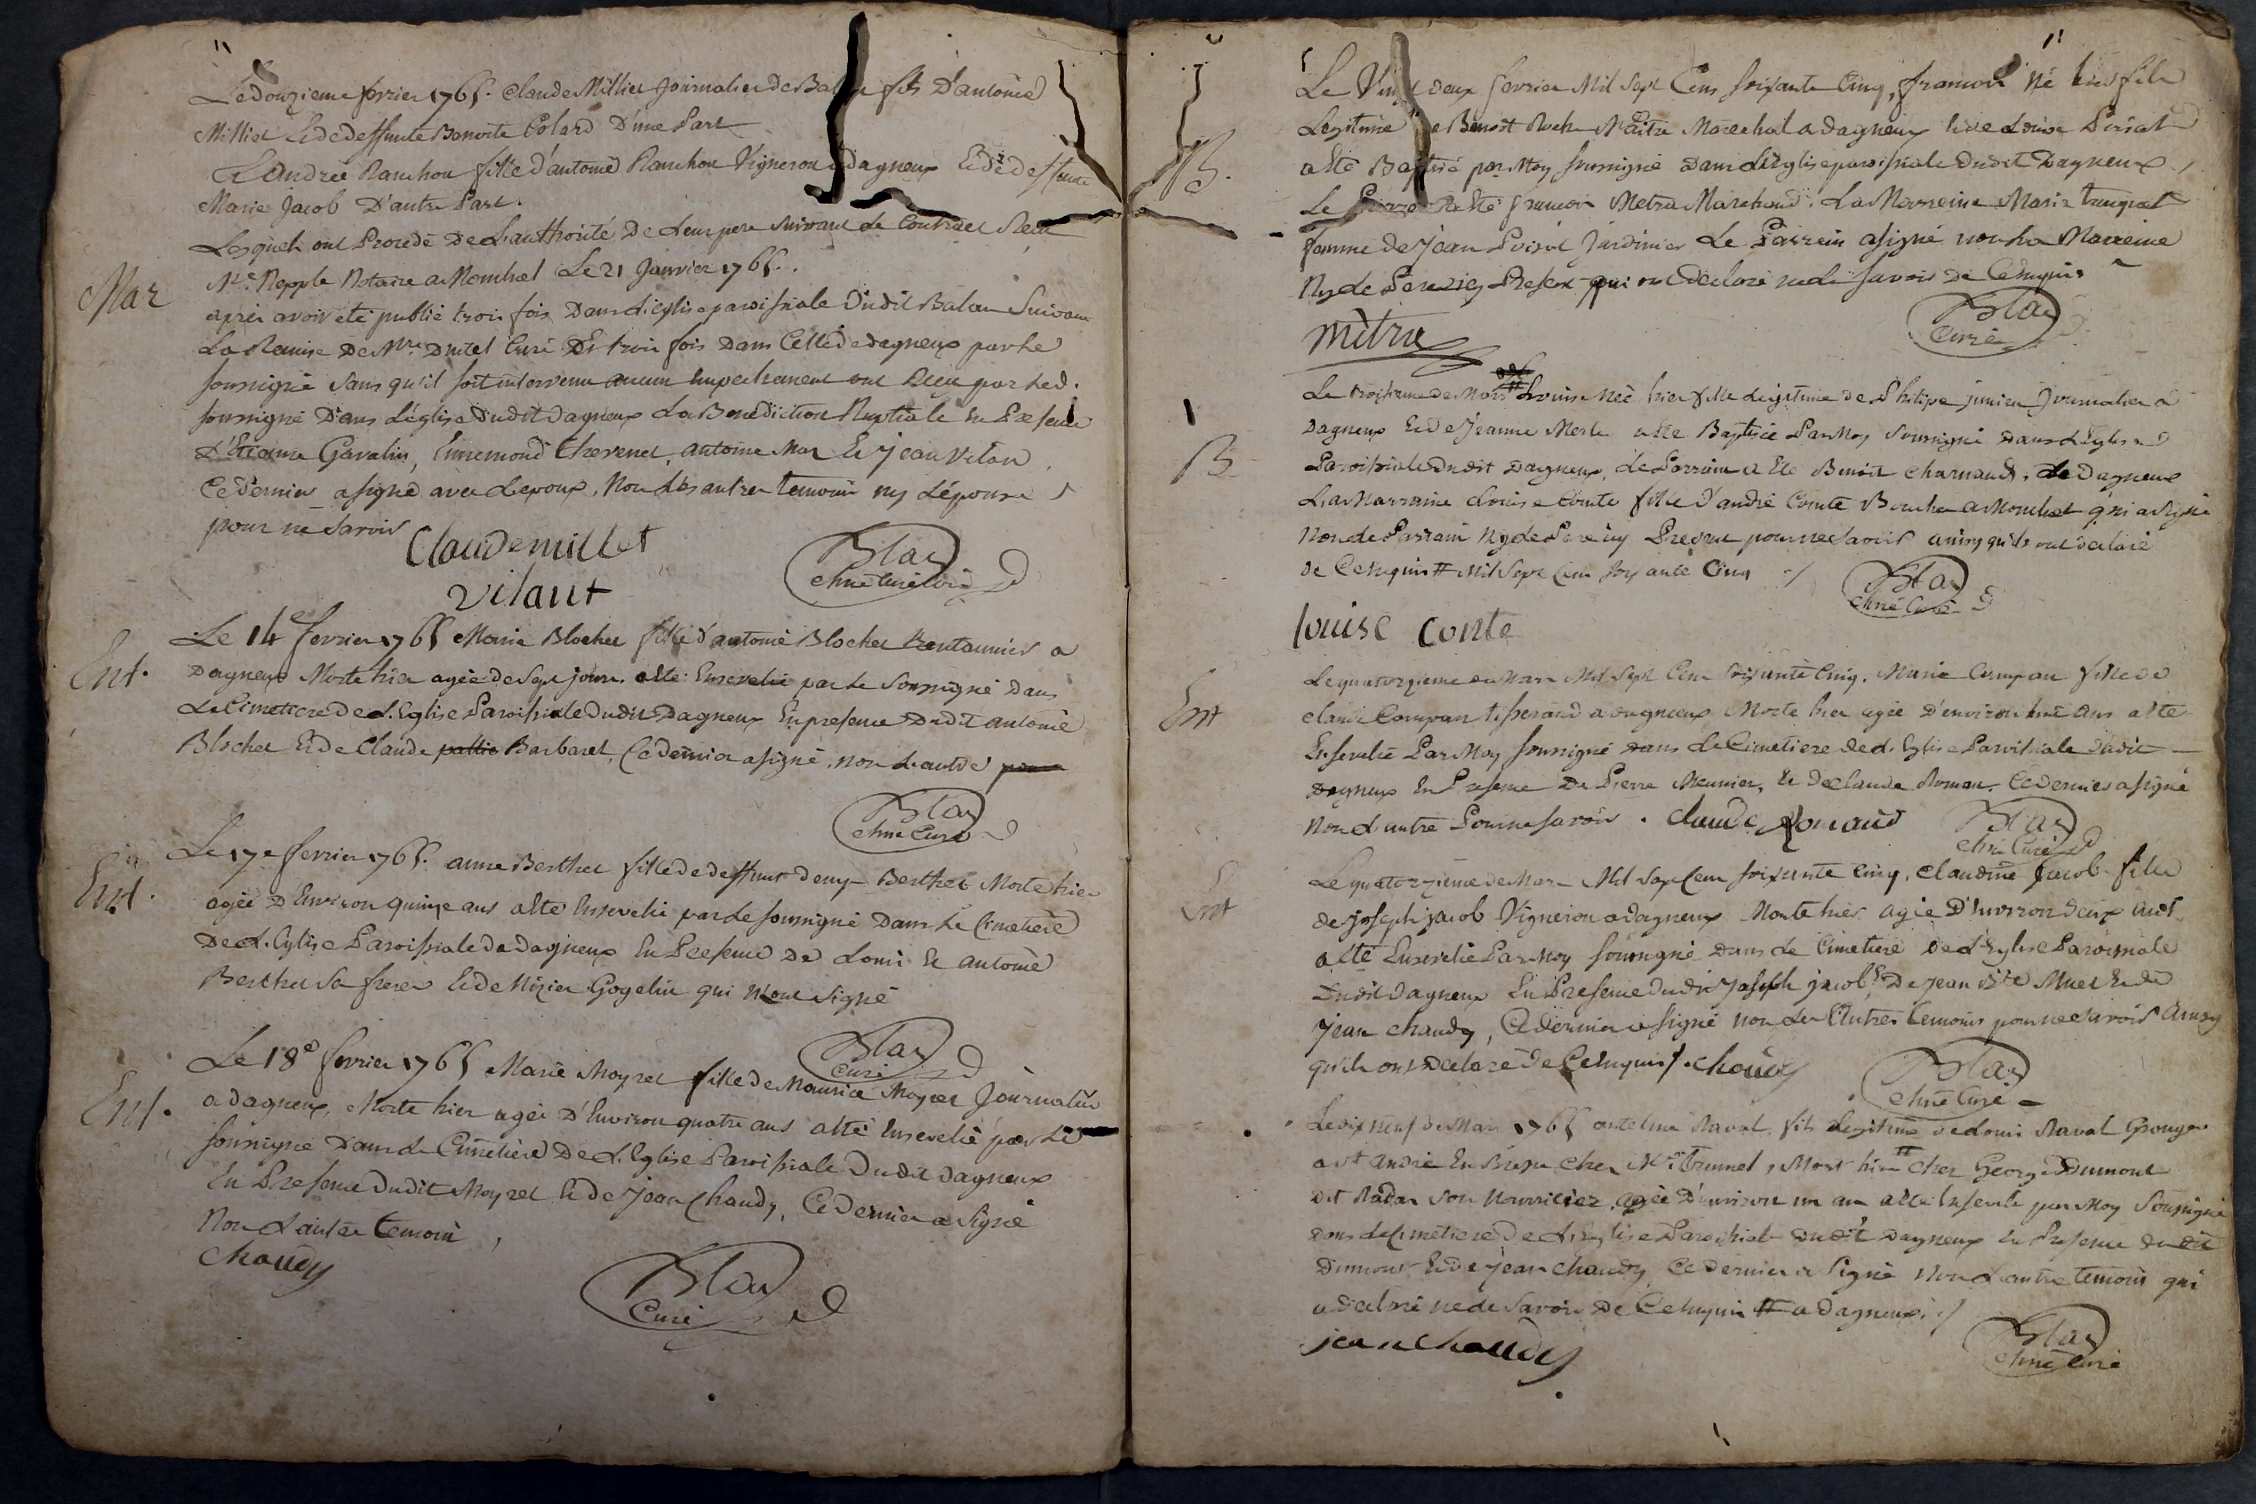 Le Douzieme fevrier 1765. Claude Milliet Journalier de Balan fils D'antoine
Milliet Et de deffunte Benoite Colard D'une Part
Et andrée Ranchon fille d'antoine Ranchon Vigneron a Dagneux Et de deffunte
Marie Jacob D'autre Part.
Lesquels ont Procedé De L'authorité De Leurs pere suivant Le Contract Receu
Mar
Me. Nepple Notaire a Momluel Le 21 Janvier 1765.
aprés avoir eté publié trois fois Dans L'eglise paroissiale Dudit Balan Suivant
La Remise De Mre. Curé Et trois fois Dans Celle de dagneux par Le
soussigné sans qu'il soit intervenu aucun Empechement ont Receu par Led.
soussigné Dans L'église Dudit Dagneux La Benediction Nuptiale En Presence
D'Etienne Gavalin, Ennemond Thevenet, antoine Mar Et Jean Vilan
Ce Dernier a signé avec L'epoux. Non Les autres temoins ny L'épouse
pour ne savoir
Claude millet
vilant
Blan
Curé
Ent.
Le 14 fevrier 1765 Marie Blochet fille d'antoine Blochet a
Dagneux Morte hier agée de Sept jours. a eté Ensevelie par Le Soussigné Dans
Le Cimetiere de L'Eglise Paroissiale dudit Dagneux En presence Dudit antoine
Blochet Et de Claude Barbaret, Ce dernier a signé, non L'autre
Blan
Curé
Ent.
Le 17e fevrier 1765. anne Berthet fille de deffunt denys Berthet Morte hier
agée D'Environ quinze ans a Eté Ensevelie par Le soussigné Dans Le Cimetiere
De L'Eglise Paroissiale De Dagneux En Presence De Louis Et antoine
Berthet Sa freres Et de Nizier Gogelin qui N'ont Signé
Blan
Curé
Ent.
Le 18e fevrier 1765 Marie Moyret fille de Maurice Moyret Journalier
a dagneux, Morte hier agée D'Environ quatre ans a Eté Ensevelie par Le
soussigné Dans Le Cimetiere De L'Eglise Paroissiale Dudit Dagneux
En Presence Dudit Moyret Et de Jean Chaudy, Ce Dernier a Signé
Non L'autre temoin,
Chaudy
Blan
Curé
Le Vingt deux fevrier Mil Sept Cens soixante Cinq, francois Né hier fils
Legitime De Benoit Roche Maitre Marechal a dagneux Et de Louise
B.
a Eté Baptisé par Moy soussigné Dans L'Eglise paroissiale Dudit Dagneux
Le a Eté francois Metra Marchand. La Marreine Marie
femme de Jean Jardinier Le Parrein a signé non La Marreine
Ny de Present qui ont Declaré ne Le savoir De Ce Enquis
mètra
Blan
Curé
Le troisieme de Mars # Louise Née hier fille Legitime de Philipe junien Journalier a
Dagneux Et de Jeanne Merle a Eté Baptisée Par Moy soussigné Dans L'Eglise
B
Paroissiale Dudit Dagneux, Le Parrein a Eté Benoit Charnand, de Dagneux
La Marraine Louise Comte fille d'andré Comte a Momluel qui a signé
Non Le Parrein Ny Le Present pour ne savoir ainsy qu'ils ont declaré
De Ce Enquis # Mil Sept Cens Soixante Cinq
Blan
Curé
louise conte
Ent
Le quatorzieme de Mars Mil Sept Cens soixante Cinq, Marie Compan fille de
Claude Compan tisserand a dagneux Morte hier agée D'environ ans a Eté
Ensevelie Par Moy soussigné Dans Le Cimetiere de L'Eglise Paroissiale Dudit
Dagneux En Presence De Pierre Meunier, Et de Claude Ronan, Ce Dernier a signé
Non L'autre Pour ne savoir.
claude Ronaud
Blan
Curé
Ent
Le quatorzieme de Mars Mil Sept Cens soixante Cinq, Claudine Jacob fille
de joseph jacob Vigneron a Dagneux Morte hier agée D'Environ Deux ans
a Eté Ensevelie Par Moy soussigné Dans Le Cimetiere De L'Eglise Paroissiale
Dudit Dagneux En Presence dudit Joseph jacob, De jean Bte. Et de
Jean Chaudy, Ce dernier a signé non Les autres temoins pour ne savoir ainsy
qu'ils ont Declaré De Ce Enquis. Chaudy
Blan
Curé
Le dix neuf De Mars 1765 Raval, fils Legitime de Louis Raval
a St andré En Bresse Chez Mr. Brunel, Mort hier # Chez George Dumont
dit Radar son Nourricier, agé D'environ un an a Eté Enseveli par Moy Soussigné
Dans Le Cimetiere De L'Eglise Paroissiale Dudit Dagneux En Presence dudit
Dumont Et de Jean Chaudy, Ce dernier a Signé Non L'autre temoin qui
a declaré ne Le Savoir De Ce Enquis # a Dagneux.
jean chaudy
Blan
Curé